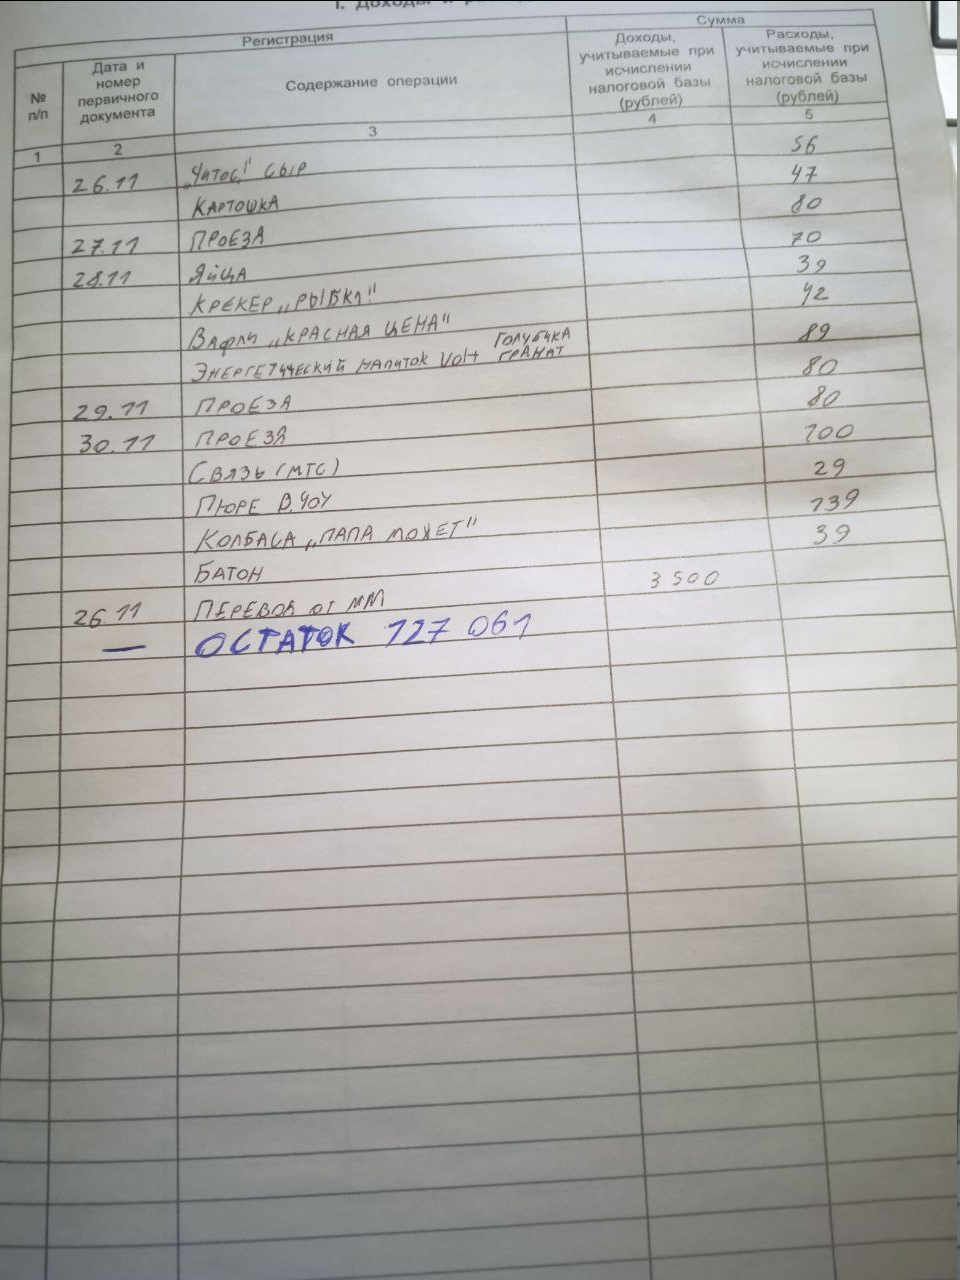 I. Доходы и
Регистрация
Сумма
№ п/п
Дата и номер первичного документа
Содержание операции
Доходы, учитываемые при исчислении налоговой базы (рублей)
Расходы, учитываемые при исчислении налоговой базы (рублей)
1 2 3 4 5
26.11 сыр 56
КАРТОШКА 47
27.11 ПРОЕЗД 80
28.11 ЯЙЦА 70
КРЕКЕР „РЫБКИ" 39
ВАФЛИ „КРАСНАЯ ЦЕНА" 42
ЭНЕРГЕТИЧЕСКИЙ НАПИТОК Volt ГОЛУБИКА ГРАНАТ 89
29.11 ПРОЕЗД 80
30.11 ПРОЕЗД 80
СВЯЗЬ (МТС) 700
ПЮРЕ 29
КОЛБАСА „ПАПА МОЖЕТ" 139
БАТОН 39
26.11 ПЕРЕВОД от ММ 3 500
— ОСТАТОК 127 061